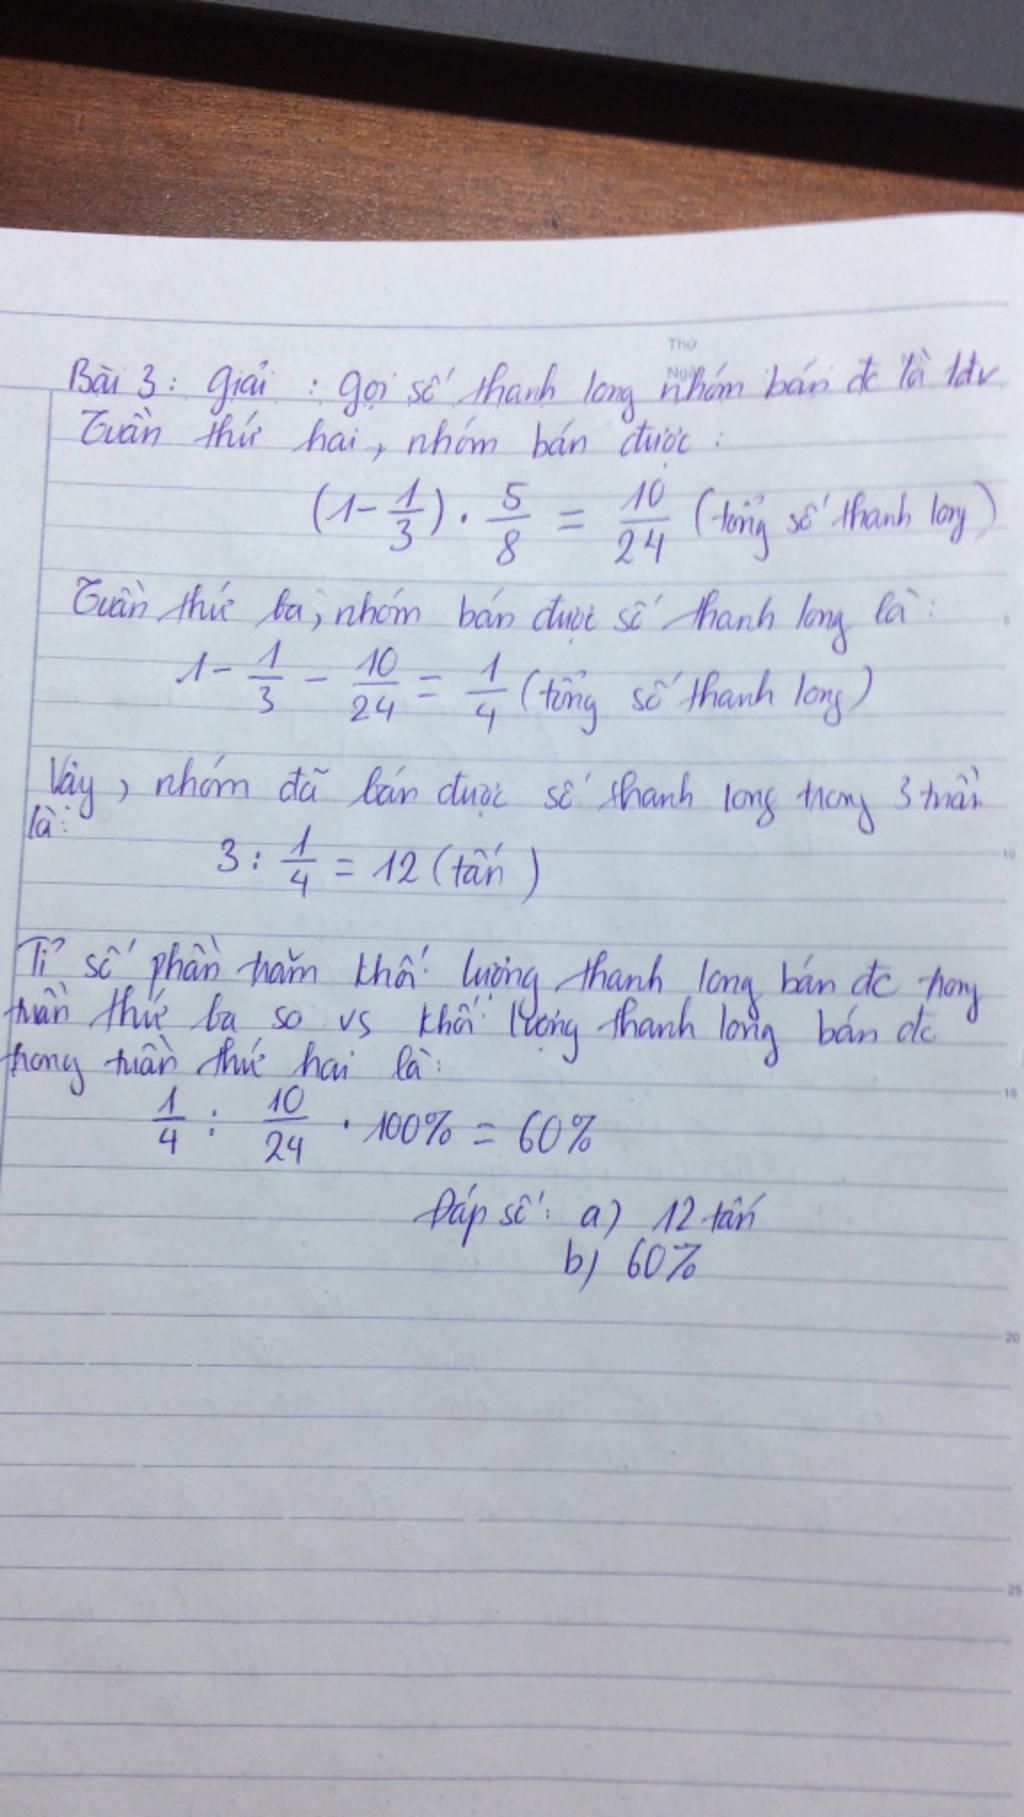 Thứ
Ngày
Bài 3: Giải: Gọi số thanh long nhóm bán đc là 1đv
Tuần thứ hai, nhóm bán được:
(1 - 1/3) . 5/8 = 10/24 (tổng số thanh long)
Tuần thứ ba, nhóm bán được số thanh long là:
1 - 1/3 - 10/24 = 1/4 (tổng số thanh long)
Vậy, nhóm đã bán được số thanh long trong 3 tuần
là:
3 : 1/4 = 12 (tấn)
Tỉ số phần trăm khối lượng thanh long bán đc trong
tuần thứ ba so vs khối lượng thanh long bán đc
trong tuần thứ hai là:
1/4 : 10/24 . 100% = 60%
Đáp số: a) 12 tấn
b) 60%
5
10
15
20
25